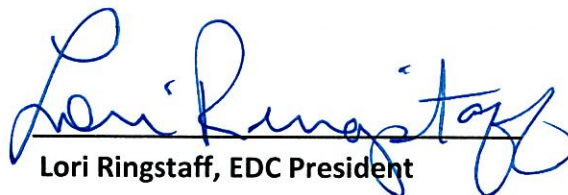 Lori Ringstaff
Lori Ringstaff, EDC President